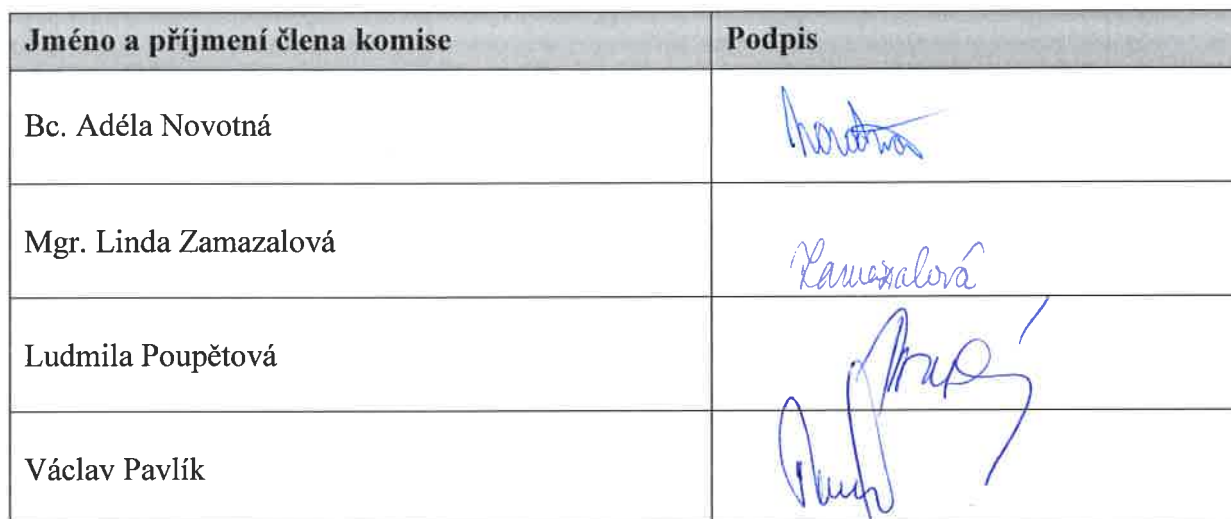 Jméno a příjmení člena komise Podpis
Bc. Adéla Novotná
Mgr. Linda Zamazalová Zamazalová
Ludmila Poupětová
Václav Pavlík